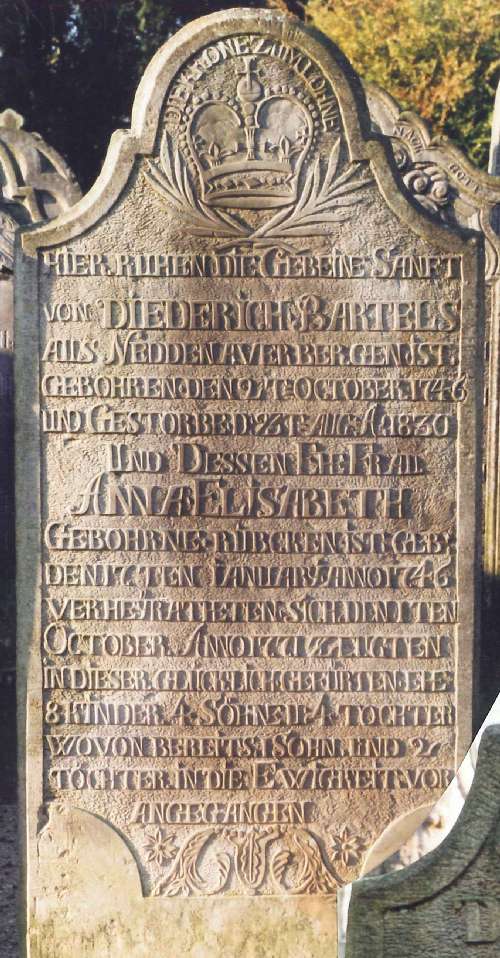 DIE KRONE ZUM LOHNE
HIER. RUHEN DIE GEBEINE SANFT
VON DIEDERICH BARTELS
AUS NEDDENAVERBERGEN IST
GEBOHREN DEN 9T. OCTOBER. 1746
UND GESTORB. ED. 23T. AUG. A. 1830
UND DESSEN EHE FRAU.
ANNA ELISABETH
GEBOHRNE RÜBCKEN IST. GEB
DEN 17 TEN IANUARY. ANNO 1746
VERHEYRATHETEN SICH. DEN 1 TEN
OCTOBER. ANNO ZEUGTEN.
IN DIESER. GLÜCKLICH GEFÜRTEN. EHE
8 KINDER. 4. SÖHNE U. 4. TÖCHTER
WOVON BEREITS. 1 SOHN. UND 2
TÖCHTER. IN DIE EWIGKEIT. VOR
ANGEGANGEN